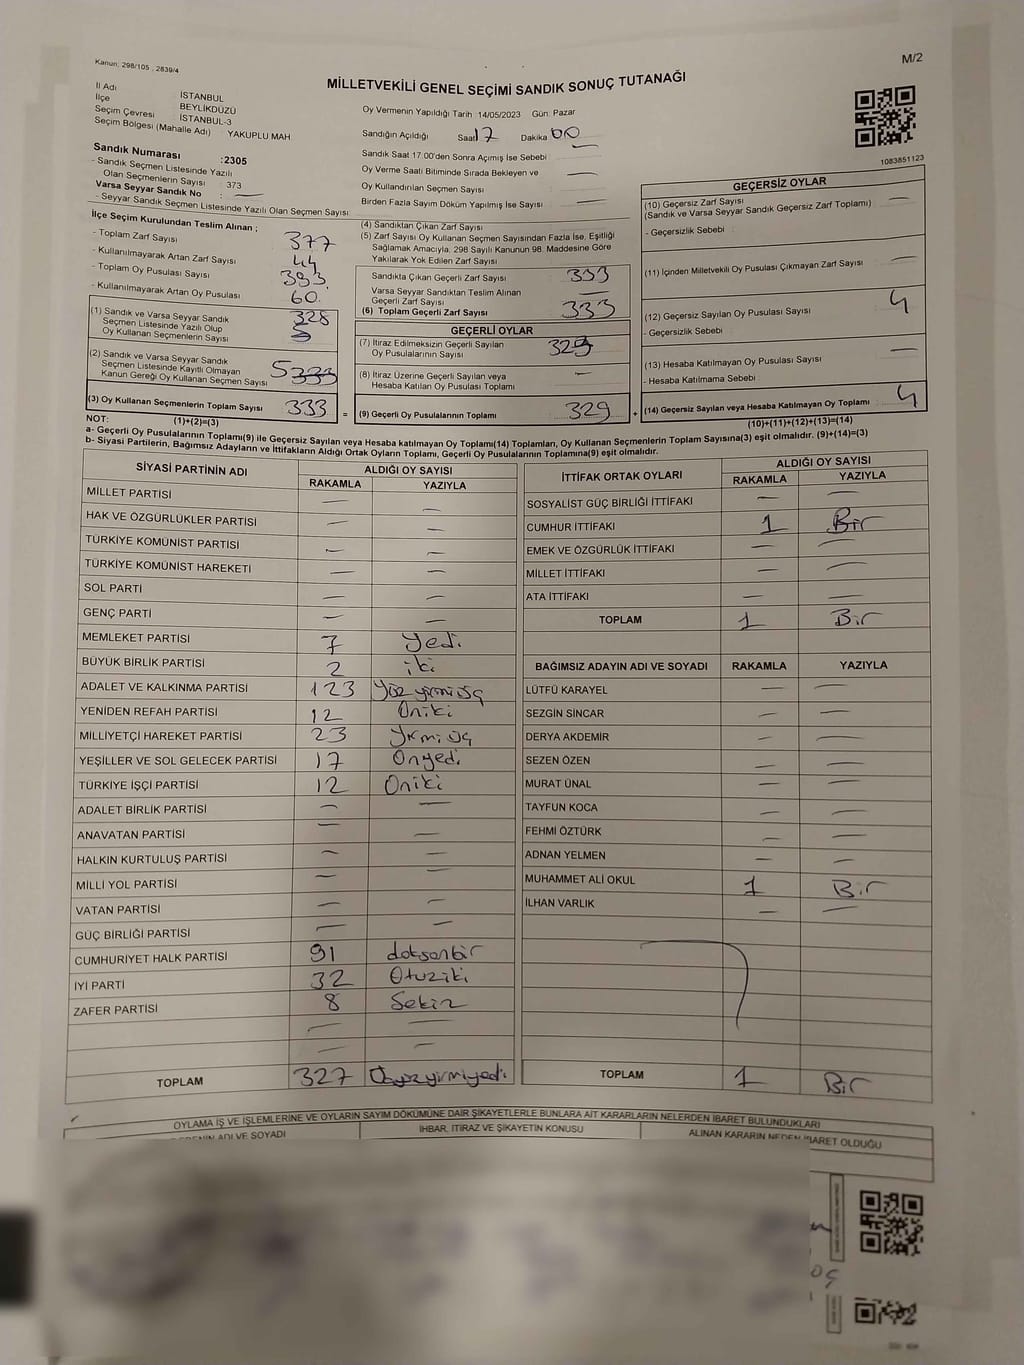 Kanun; 298/105 , 2839/4
M/2
MİLLETVEKİLİ GENEL SEÇİMİ SANDIK SONUÇ TUTANAĞI
İl Adı İSTANBUL
İlçe BEYLİKDÜZÜ
Seçim Çevresi İSTANBUL-3
Seçim Bölgesi (Mahalle Adı) YAKUPLU MAH
Sandık Numarası :2305
- Sandık Seçmen Listesinde Yazılı
Olan Seçmenlerin Sayısı : 373
Varsa Seyyar Sandık No : —
- Seyyar Sandık Seçmen Listesinde Yazılı Olan Seçmen Sayısı
Oy Vermenin Yapıldığı Tarih 14/05/2023 Gün: Pazar
Sandığın Açıldığı Saat 17 Dakika 00
Sandık Saat 17:00'den Sonra Açımış İse Sebebi —
Oy Verme Saati Bitiminde Sırada Bekleyen ve
Oy Kullandırılan Seçmen Sayısı —
Birden Fazla Sayım Döküm Yapılmış İse Sayısı —
1083851123
İlçe Seçim Kurulundan Teslim Alınan ;
- Toplam Zarf Sayısı 377
- Kullanılmayarak Artan Zarf Sayısı 44
- Toplam Oy Pusulası Sayısı 393
- Kullanılmayarak Artan Oy Pusulası 60
(1) Sandık ve Varsa Seyyar Sandık 328
Seçmen Listesinde Yazılı Olup
Oy Kullanan Seçmenlerin Sayısı
(2) Sandık ve Varsa Seyyar Sandık
Seçmen Listesinde Kayıtlı Olmayan 5 333
Kanun Gereği Oy Kullanan Seçmen Sayısı
(3) Oy Kullanan Seçmenlerin Toplam Sayısı 333
(4) Sandıktan Çıkan Zarf Sayısı
(5) Zarf Sayısı Oy Kullanan Seçmen Sayısından Fazla İse, Eşitliği
Sağlamak Amacıyla, 298 Sayılı Kanunun 98. Maddesine Göre
Yakılarak Yok Edilen Zarf Sayısı
Sandıkta Çıkan Geçerli Zarf Sayısı 333
Varsa Seyyar Sandıktan Teslim Alınan
Geçerli Zarf Sayısı —
(6) Toplam Geçerli Zarf Sayısı 333
GEÇERLİ OYLAR
(7) İtiraz Edilmeksizin Geçerli Sayılan 329
Oy Pusulalarının Sayısı
(8) İtiraz Üzerine Geçerli Sayılan veya —
Hesaba Katılan Oy Pusulası Toplamı
= (9) Geçerli Oy Pusulalarının Toplamı 329
GEÇERSİZ OYLAR
(10) Geçersiz Zarf Sayısı —
(Sandık ve Varsa Seyyar Sandık Geçersiz Zarf Toplamı)
- Geçersizlik Sebebi :
(11) İçinden Milletvekili Oy Pusulası Çıkmayan Zarf Sayısı —
(12) Geçersiz Sayılan Oy Pusulası Sayısı 4
- Geçersizlik Sebebi :
(13) Hesaba Katılmayan Oy Pusulası Sayısı —
- Hesaba Katılmama Sebebi :
+ (14) Geçersiz Sayılan veya Hesaba Katılmayan Oy Toplamı 4
NOT: (1)+(2)=(3)
(10)+(11)+(12)+(13)=(14)
a- Geçerli Oy Pusulalarının Toplamı(9) ile Geçersiz Sayılan veya Hesaba katılmayan Oy Toplamı(14) Toplamları, Oy Kullanan Seçmenlerin Toplam Sayısına(3) eşit olmalıdır. (9)+(14)=(3)
b- Siyasi Partilerin, Bağımsız Adayların ve İttifakların Aldığı Ortak Oyların Toplamı, Geçerli Oy Pusulalarının Toplamına(9) eşit olmalıdır.
SİYASİ PARTİNİN ADI ALDIĞI OY SAYISI
RAKAMLA YAZIYLA
MİLLET PARTİSİ — —
HAK VE ÖZGÜRLÜKLER PARTİSİ — —
TÜRKİYE KOMÜNİST PARTİSİ — —
TÜRKİYE KOMÜNİST HAREKETİ — —
SOL PARTİ — —
GENÇ PARTİ — —
MEMLEKET PARTİSİ 7 Yedi
BÜYÜK BİRLİK PARTİSİ 2 iki
ADALET VE KALKINMA PARTİSİ 123 Yüz yirmi üç
YENİDEN REFAH PARTİSİ 12 Oniki
MİLLİYETÇİ HAREKET PARTİSİ 23 Yirmi üç
YEŞİLLER VE SOL GELECEK PARTİSİ 17 Onyedi
TÜRKİYE İŞÇİ PARTİSİ 12 Oniki
ADALET BİRLİK PARTİSİ — —
ANAVATAN PARTİSİ — —
HALKIN KURTULUŞ PARTİSİ — —
MİLLİ YOL PARTİSİ — —
VATAN PARTİSİ — —
GÜÇ BİRLİĞİ PARTİSİ — —
CUMHURİYET HALK PARTİSİ 91 doksanbir
İYİ PARTİ 32 Otuziki
ZAFER PARTİSİ 8 Sekiz
— —
— —
TOPLAM 327 Üçyüzyirmiyedi
İTTİFAK ORTAK OYLARI ALDIĞI OY SAYISI
RAKAMLA YAZIYLA
SOSYALİST GÜÇ BİRLİĞİ İTTİFAKI — —
CUMHUR İTTİFAKI 1 Bir
EMEK VE ÖZGÜRLÜK İTTİFAKI — —
MİLLET İTTİFAKI — —
ATA İTTİFAKI — —
TOPLAM 1 Bir
BAĞIMSIZ ADAYIN ADI VE SOYADI RAKAMLA YAZIYLA
LÜTFÜ KARAYEL — —
SEZGİN SİNCAR — —
DERYA AKDEMİR — —
SEZEN ÖZEN — —
MURAT ÜNAL — —
TAYFUN KOCA — —
FEHMİ ÖZTÜRK — —
ADNAN YELMEN — —
MUHAMMET ALİ OKUL 1 Bir
İLHAN VARLIK — —
TOPLAM 1 Bir
OYLAMA İŞ VE İŞLEMLERİNE VE OYLARIN SAYIM DÖKÜMÜNE DAİR ŞİKAYETLERLE BUNLARA AİT KARARLARIN NELERDEN İBARET BULUNDUKLARI
ADI VE SOYADI İHBAR, İTİRAZ VE ŞİKAYETİN KONUSU ALINAN KARARIN NEDEN İBARET OLDUĞU